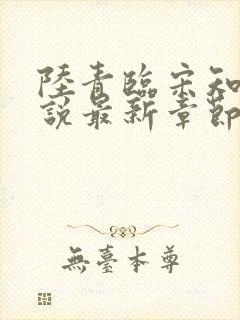 陸青臨宋知
說最新章節
無臺本尊